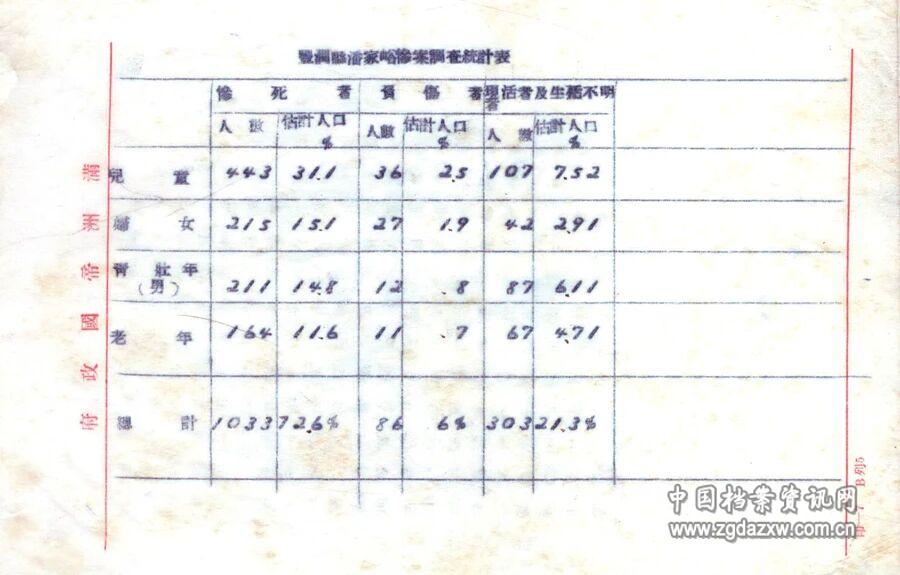 豐潤縣潘家峪慘案調查統計表
慘 死 者 負 傷 者 現活者及生死不明者
人 數 估計人口% 人數 估計人口% 人 數 估計人口%
兒 童 443 31.1 36 2.5 107 7.52
婦 女 215 15.1 27 1.9 42 2.91
青 壯 年(男) 211 14.8 12 .8 87 6.11
老 年 164 11.6 11 .7 67 4.71
總 計 1033 72.6% 86 6% 303 21.3%
滿洲帝國政府
B列5
中国档案资讯网
www.zgdazxw.com.cn